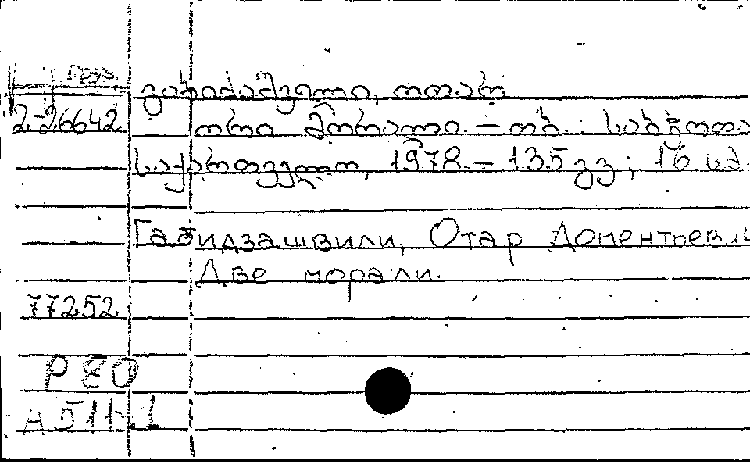 груз.
გაბიძაშვილი, ოთარ
2-26642 ორი მორალი. – თბ. : საბჭოთა
საქართველო, 1978. – 135 გვ ; 16 სმ.
Габидзашвили, Отар Доментьеви
Две морали.
77252
Р ЕО
А 511.1